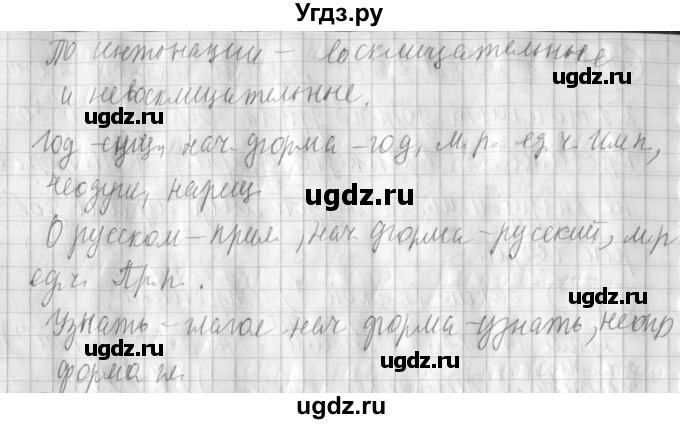 Угдз.ру
По интонации - восклицательные
ugdz.ru
и невосклицательные.
ugdz.ru
Год - сущ., нач. форма - год, м.р. ед.ч. Им.п,
неодуш, нариц.
ugdz.ru
О русском - прил., нач. форма - русский, м.р
ед.ч. Пр.п.
ugdz.ru
Узнать - глагол нач форма - узнать, неопр
ugdz.ru
форма гл.
ugdz.ru
ugdz.ru